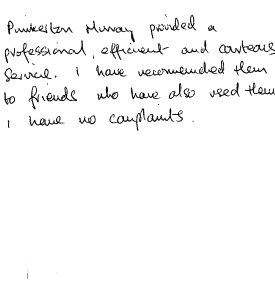 Pinkerton Murray provided a
professional, efficient and courteous
service. I have recommended them
to friends who have also used them
I have no complaints.